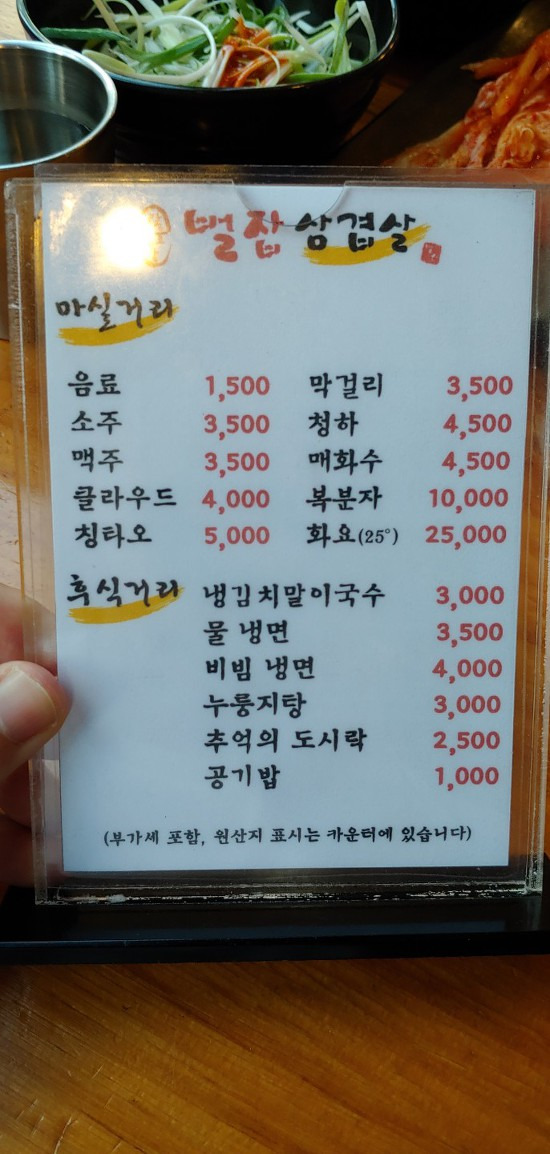 벌집 삼겹살
마실거리
음료 1,500 막걸리 3,500
소주 3,500 청하 4,500
맥주 3,500 매화수 4,500
클라우드 4,000 복분자 10,000
칭타오 5,000 화요(25°) 25,000
후식거리 냉김치말이국수 3,000
물 냉면 3,500
비빔 냉면 4,000
누룽지탕 3,000
추억의 도시락 2,500
공기밥 1,000
(부가세 포함, 원산지 표시는 카운터에 있습니다)